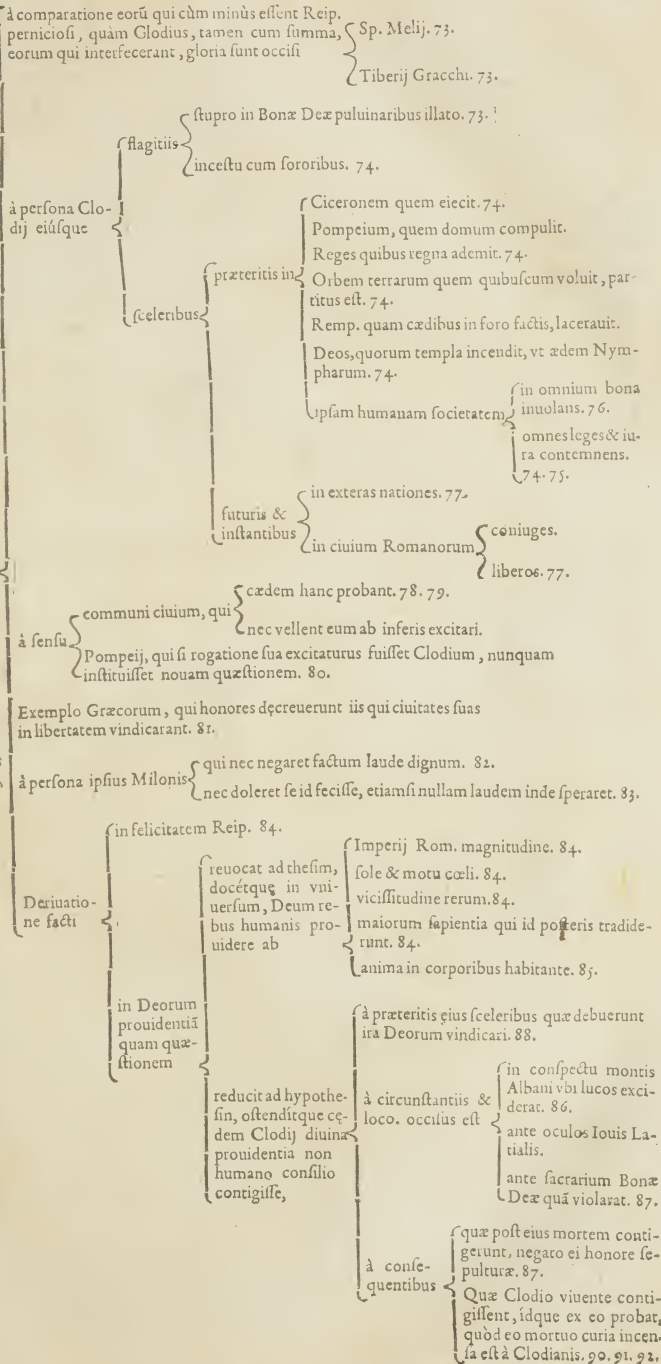 à comparatione eorũ qui cùm minùs eſſent Reip.
pernicioſi, quàm Clodius, tamen cum ſumma,
eorum qui interfecerant, gloria ſunt occiſi
Sp. Melij. 73.
Tiberij Gracchi. 73.
à perſona Clo-
dij eiúſque
flagitiis
ſtupro in Bonæ Deæ puluinaribus illato. 73.
inceſtu cum ſororibus. 74.
ſceleribus
præteritis in
Ciceronem quem eiecit. 74.
Pompeium, quem domum compulit.
Reges quibus regna ademit. 74.
Orbem terrarum quem quibuſcum voluit, par-
titus eſt. 74.
Remp. quam cædibus in foro factis, lacerauit.
Deos, quorum templa incendit, vt ædem Nym-
pharum. 74.
ipſam humanam ſocietatem
in omnium bona
inuolans. 76.
omnes leges & iu-
ra contemnens.
74. 75.
futuris &
inſtantibus
in exteras nationes. 77.
in ciuium Romanorum
coniuges.
liberos. 77.
à ſenſu
communi ciuium, qui
cædem hanc probant. 78. 79.
nec vellent eum ab inferis excitari.
Pompeij, qui ſi rogatione ſua excitaturus fuiſſet Clodium, nunquam
inſtituiſſet nouam quæſtionem. 80.
Exemplo Græcorum, qui honores decreuerunt iis qui ciuitates ſuas
in libertatem vindicarant. 81.
à perſona ipſius Milonis
qui nec negaret factum laude dignum. 82.
nec doleret ſe id feciſſe, etiamſi nullam laudem inde ſperaret. 83.
Deriuatio-
ne facti
in felicitatem Reip. 84.
in Deorum
prouidentiã
quam quæ-
ſtionem
reuocat ad theſim,
docétque in vni-
uerſum, Deum re-
bus humanis pro-
uidere ab
Imperij Rom. magnitudine. 84.
ſole & motu cœli. 84.
viciſſitudine rerum. 84.
maiorum ſapientia qui id poſteris tradide-
runt. 84.
anima in corporibus habitante. 85.
reducit ad hypothe-
ſin, oſtendítque cę-
dem Clodij diuina
prouidentia non
humano conſilio
contigiſſe,
à præteritis eius ſceleribus quæ debuerunt
ira Deorum vindicari. 88.
à circunſtantiis &
loco. occiſus eſt
in conſpectu montis
Albani vbi lucos exci-
derat. 86.
ante oculos Iouis La-
tialis.
ante ſacrarium Bonæ
Deæ quã violarat. 87.
à conſe-
quentibus
quæ poſt eius mortem conti-
gerunt, negato ei honore ſe-
pulturæ. 87.
Quæ Clodio viuente conti-
giſſent, ídque ex eo probat,
quòd eo mortuo curia incen-
ſa eſt à Clodianis. 90. 91. 92.